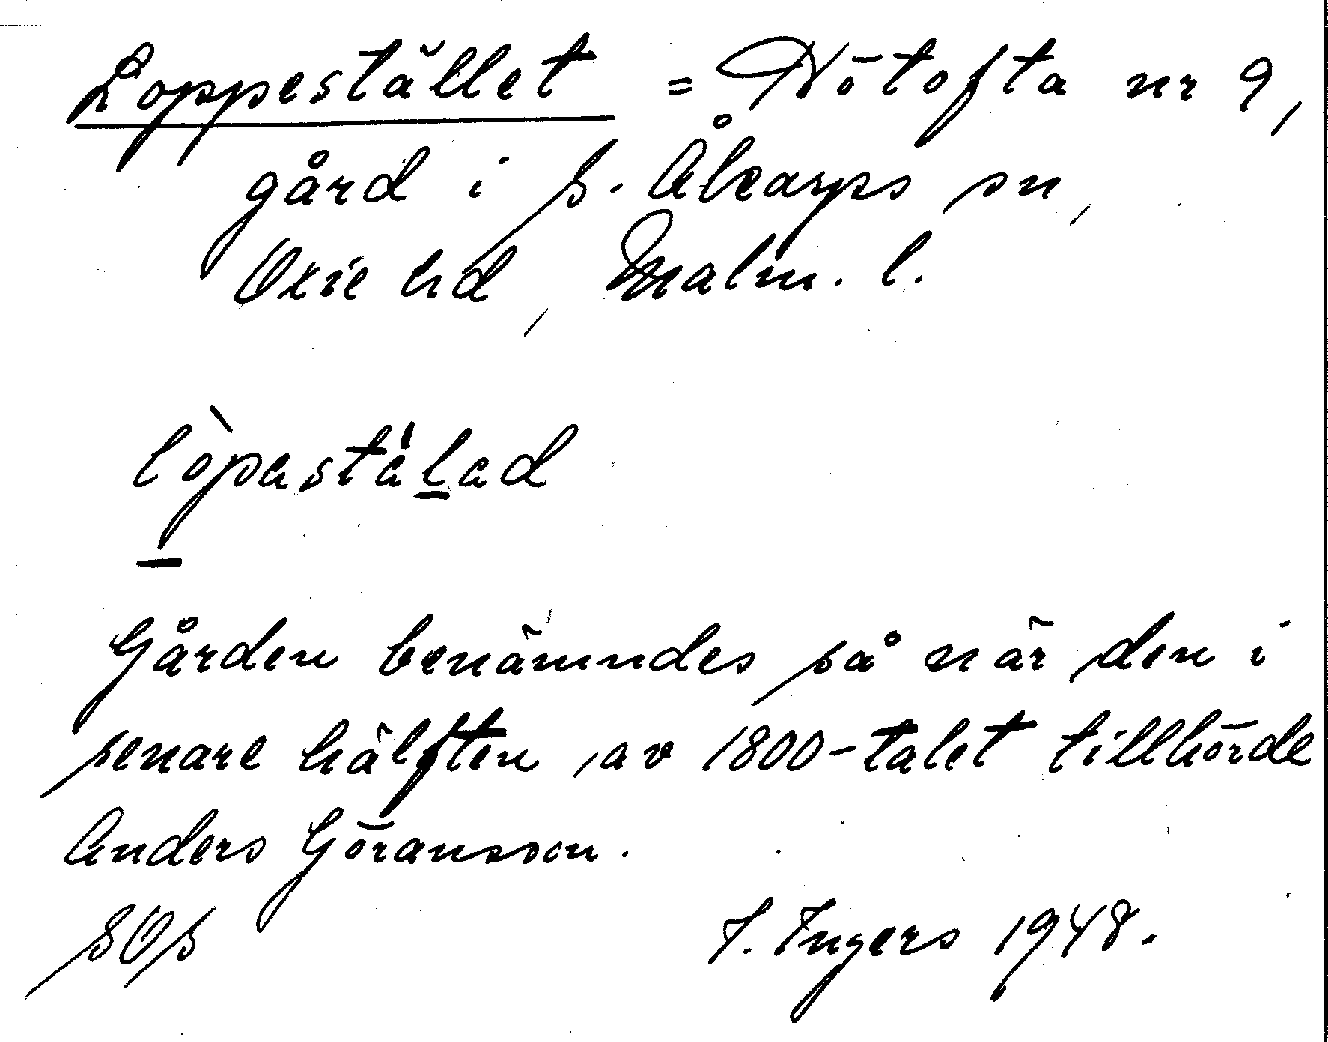 Loppestället = Nötofta nr 9,
gård i S. Åkarps sn,
Oxie hd, Malm. l.
Gården benämndes så när den i
senare hälften av 1800-talet tillhörde
Anders Göransson.
SOS I. Ingers 1948.